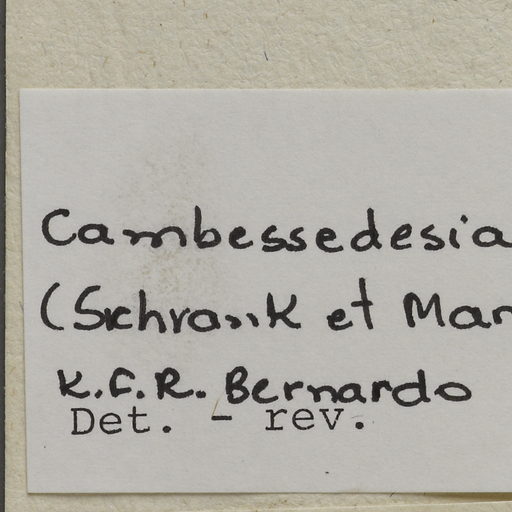 Cambessedesia
(Schrank et Mar
K.F.R. Bernardo
Det. - rev.